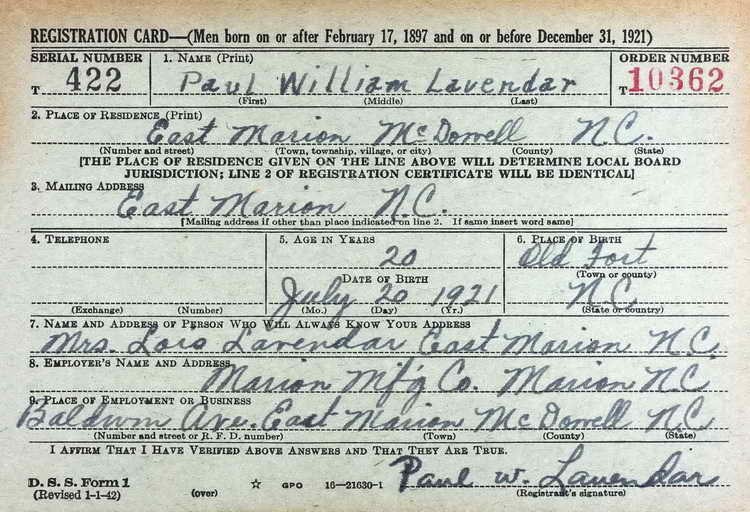 REGISTRATION CARD—(Men born on or after February 17, 1897 and on or before December 31, 1921)
SERIAL NUMBER 1. NAME (Print) ORDER NUMBER
T 422 Paul William Lavendar T 10362
(First) (Middle) (Last)
2. PLACE OF RESIDENCE (Print)
East Marion McDowell N.C.
(Number and street) (Town, township, village, or city) (County) (State)
[THE PLACE OF RESIDENCE GIVEN ON THE LINE ABOVE WILL DETERMINE LOCAL BOARD
JURISDICTION; LINE 2 OF REGISTRATION CERTIFICATE WILL BE IDENTICAL]
3. MAILING ADDRESS
East Marion N.C.
[Mailing address if other than place indicated on line 2. If same insert word same]
4. TELEPHONE 5. AGE IN YEARS 6. PLACE OF BIRTH
20 Old Fort
(Town or county)
DATE OF BIRTH
July 20 1921 N C
(Exchange) (Number) (Mo.) (Day) (Yr.) (State or country)
7. NAME AND ADDRESS OF PERSON WHO WILL ALWAYS KNOW YOUR ADDRESS
Mrs. Lois Lavendar East Marion N C.
8. EMPLOYER'S NAME AND ADDRESS
Marion Mf'g Co. Marion N C
9. PLACE OF EMPLOYMENT OR BUSINESS
Baldwin Ave. East Marion McDowell N C
(Number and street or R. F. D. number) (Town) (County) (State)
I AFFIRM THAT I HAVE VERIFIED ABOVE ANSWERS AND THAT THEY ARE TRUE.
Paul W. Lavendar
D. S. S. Form 1
(Revised 1-1-42) (over) ☆ GPO 16—21630-1 (Registrant's signature)